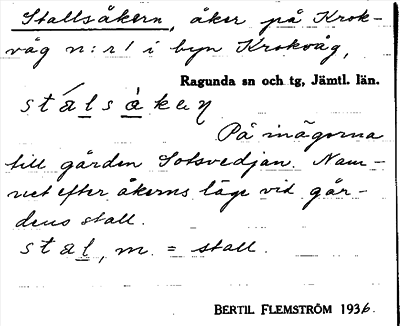 Stallsåkern, åker på Krok-
våg n:r 1 i byn Krokvåg,
Ragunda sn och tg, Jämtl. län.
stálsàkaɳ
På inägorna
till gården Sotsvedjan. Nam-
net efter åkerns läge vid går-
dens stall.
stal, m. = stall.
BERTIL FLEMSTRÖM 1936.